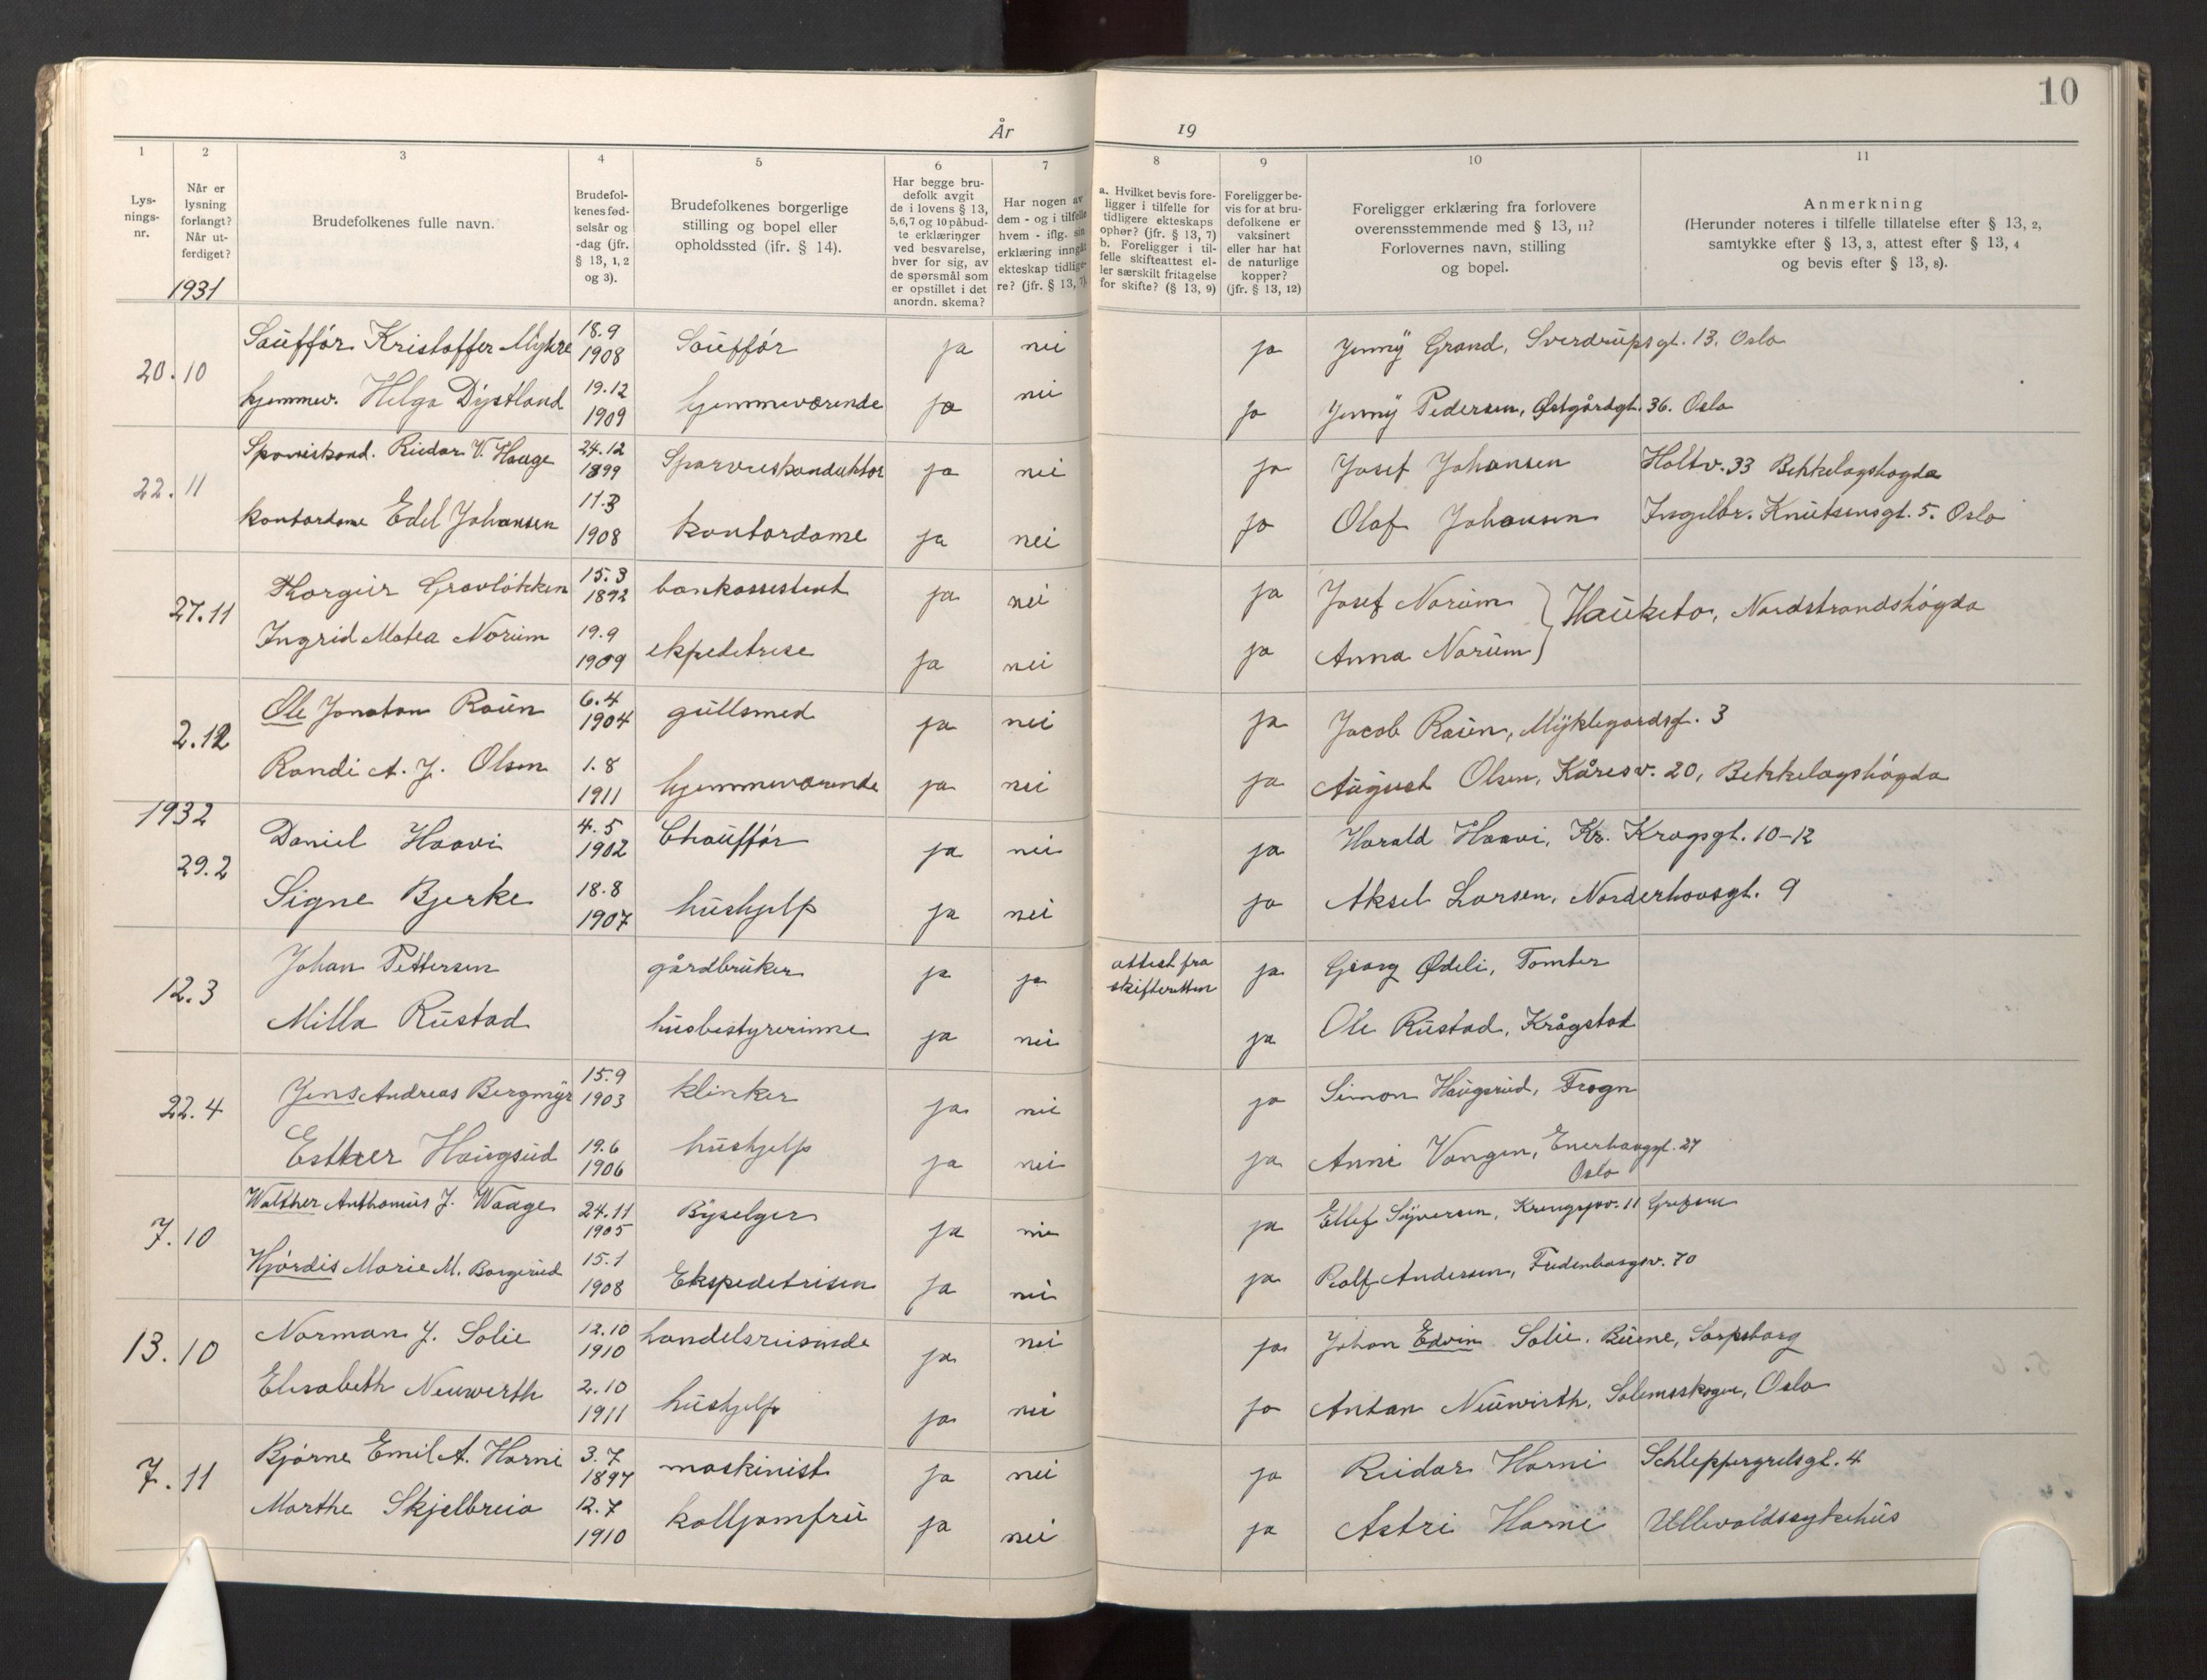 10
År 19
1 2 3 4 5 6 7 8 9 10 11
Lys-
nings-
nr.
Når er
lysning
forlangt?
Når ut-
ferdiget?
Brudefolkenes fulle navn.
Brudefol-
kenes fød-
selsår og
-dag (jfr.
§ 13, 1, 2
og 3).
Brudefolkenes borgerlige
stilling og bopel eller
opholdssted (ifr. § 14).
Har begge bru-
defolk avgit
de i lovens § 13,
5,6,7 og 10 påbud-
te erklæringer
ved besvarelse,
hver for sig, av
de spørsmål som
er opstillet i det
anordn. skema?
Har nogen av
dem - og i tilfelle
hvem - iflg. sin
erklæring inngått
ekteskap tidlige-
re? (jfr. § 13, 7).
a. Hvilket bevis fore-
ligger i tilfelle for
tidligere ekteskaps
ophør? (jfr. § 13, 7)
b. Foreligger i til-
felle skifteattest el-
ler særskilt fritagelse
for skifte? (§ 13, 9)
Foreligger be-
vis for at bru-
defolkene er
vaksinert
eller har hat
de naturlige
kopper?
(jfr. § 13, 12)
Foreligger erklæring fra forlovere
overensstemmende med § 13, 11?
Forlovernes navn, stilling
og bopel.
Anmerkning
(Herunder noteres i tilfelle tillatelse efter § 13, 2,
samtykke efter § 13, 3, attest efter § 13, 4
og bevis efter § 13, 8).
1931
20.10 Sauffør Kristoffer Myhre 18.9 1908 Sauffør ja nei ja Jenny Grand, Sverdrupsgt. 13. Oslo
hjemmev. Helga Dystland 19.12 1909 hjemmeværende ja nei ja Jenny Pedersen, Østgårdgt. 36. Oslo
22.11 Sporveiskond. Reidar V. Hauge 24.12 1899 Sporveiskonduktør ja nei ja Josef Johansen Holtv. 33 Bekkelagshøgda
kontordame Edel Johansen 11.3 1908 kontordame ja nei ja Olaf Johansen Ingelbr. Knutsensgt. 5. Oslo
27.11 Thorgeir Gravløkken 15.3 1892 bankassestent ja nei ja Josef Norum } Hauketo, Nordstrandshøgda
Ingrid Matea Norum 19.9 1909 ekpeditrise ja nei ja Anna Norum
2.12 Ole Jonatan Rauen 6.4 1904 gullsmed ja nei ja Jacob Rauen, Myklegardsgt. 3
Randi A. J. Olsen 1.8 1911 hjemmeværende ja nei ja August Olsen, Kåresv. 20, Bekkelagshøgda
1932
29.2 Daniel Haavi 4.5 1902 Chauffør ja nei ja Harald Haavi, Kr. Krogsgt. 10-12
Signe Bjerke 18.8 1907 hushjelp ja nei ja Aksel Larsen, Norderhovsgt. 9
12.3 Johan Pettersen gårdbruker ja ja attest fra skifteretten ja Georg Ødeli, Tomter
Milla Rustad husbestyrerinne ja nei ja Ole Rustad, Krågstad
22.4 Jens Andreas Bergmyr 15.9 1903 klinker ja nei ja Simon Haugsrud, Frogn
Esther Haugsrud 19.6 1906 hushjelp ja nei ja Anni Vangen, Enerhauggt. 27
Oslo
7.10 Walther Anthonius J. Waage 24.11 1905 Byselger ja nei ja Ellef Syversen, Krengsjøv. 11 Grefsen
Hjørdis Marie M. Borgerud 15.1 1908 Ekspedetrisen ja nei ja Rolf Andersen, Fredenborgsv. 70
13.10 Norman J. Solie 12.10 1910 handelsreisende ja nei ja Johan Edvin Solie. Buene, Sarpsborg
Elisabeth Neuwerth 2.10 1911 hushjelp ja nei ja Antan Neuwirth, Solemskogen, Oslo
7.11 Bjørne Emil A. Horni 3.7 1897 maskinist ja nei ja Reidar Horni Schleppegrelsgt. 4
Marthe Skjelbreia 12.7 1910 koldjomfru ja nei ja Astri Horni Ullevoldssykehus